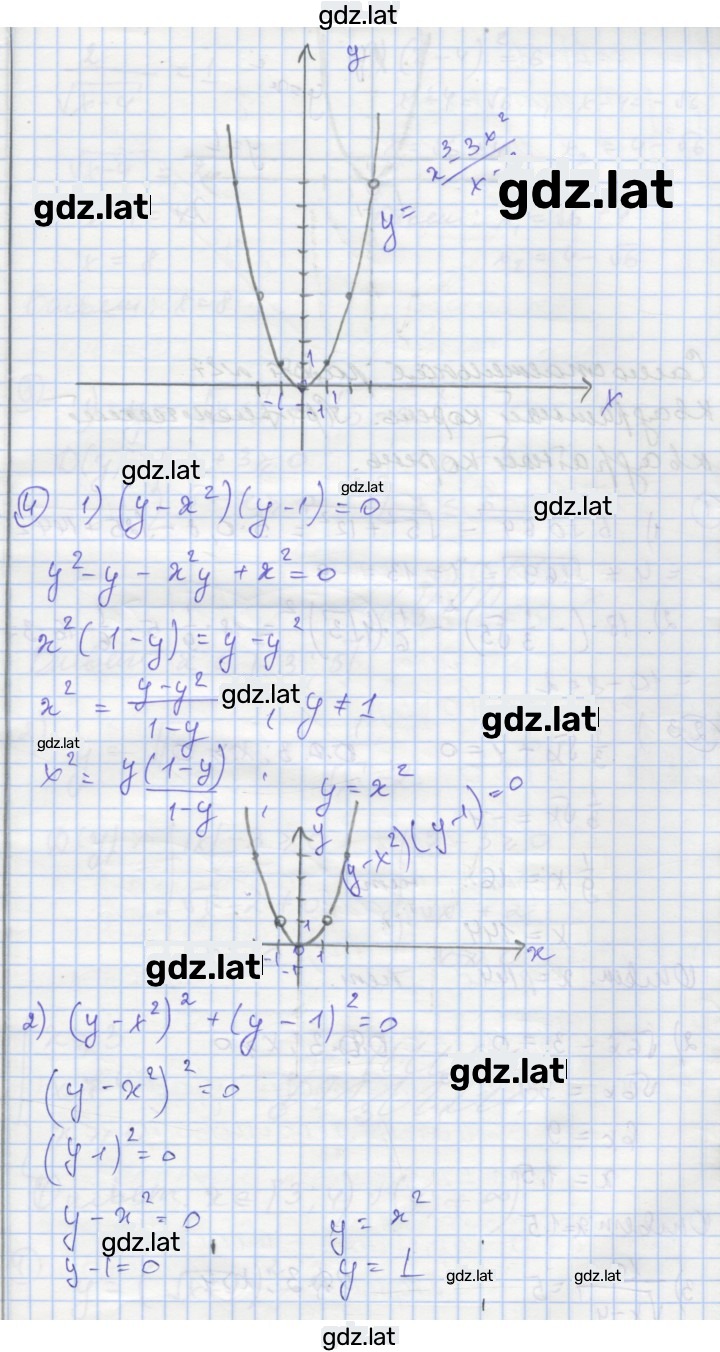 gdz.lat
y
x³-3x²
x-
y=
gdz.lat
gdz.lat
1
-1
1
-1
x
gdz.lat
gdz.lat
gdz.lat
④ 1) (y-x²)(y-1)=0
y²-y-x²y+x²=0
x²(1-y)=y-y²
x² = y-y² / 1-y ; y≠1
gdz.lat
gdz.lat
gdz.lat
x² = y(1-y) / 1-y ; y=x²
y
(y-x²)(y-1)=0
1
-1
0
1
-1
x
gdz.lat
2) (y-x²)²+(y-1)²=0
gdz.lat
(y-x²)²=0
(y-1)²=0
y-x²=0 y=x²
gdz.lat
y-1=0 y=1
gdz.lat
gdz.lat
gdz.lat